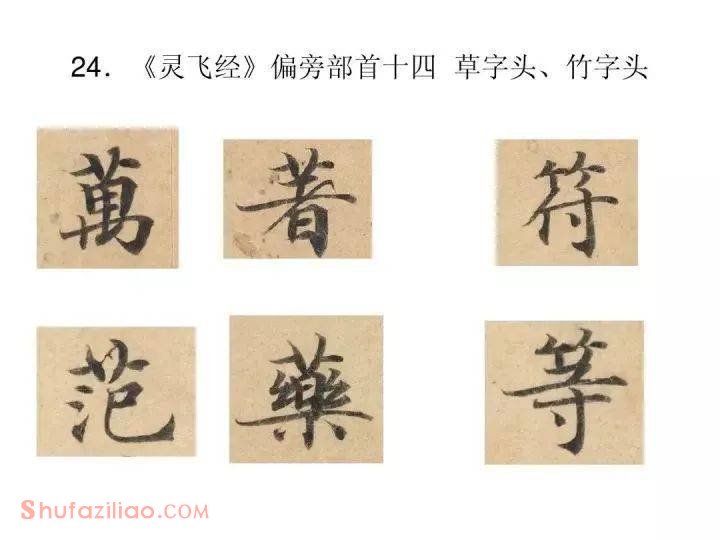 24．《灵飞经》偏旁部首十四 草字头、竹字头
萬 著 符
范 藥 等
Shufaziliao.com